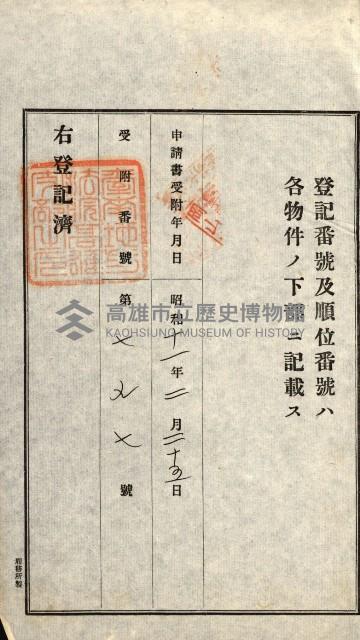 登記番號及順位番號ハ
各物件ノ下部ニ記載ス
申請書受附年月日 昭和十一年二月二十五日
受附番號 第七九七號
右登記濟
高雄市立歷史博物館
KAOHSIUNG MUSEUM OF HISTORY